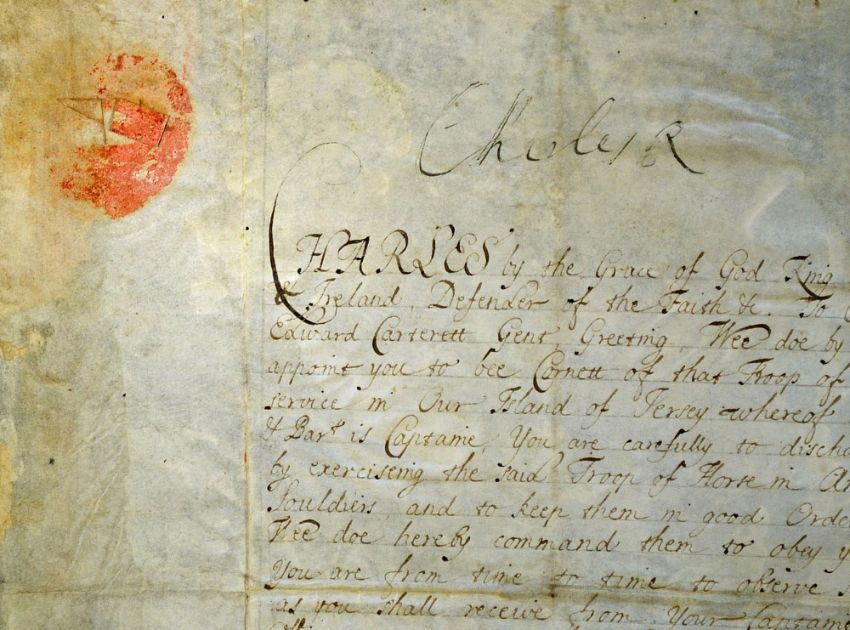 Charles R
CHARLES by the Grace of God King
& Ireland, Defender of the Faith &c. To
Edward Carterett Gent, Greeting, Wee doe by
appoint you to bee Cornett of that Troop of
service in Our Island of Jersey whereof
& Bart is Captaine, You are carefully to discha
by exerciseing the said Troop of Horse in Ar
Souldiers, and to keep them in good Order
Wee doe hereby command them to obey y
You are from time to time to observe
as you shall receive from Your Captaine